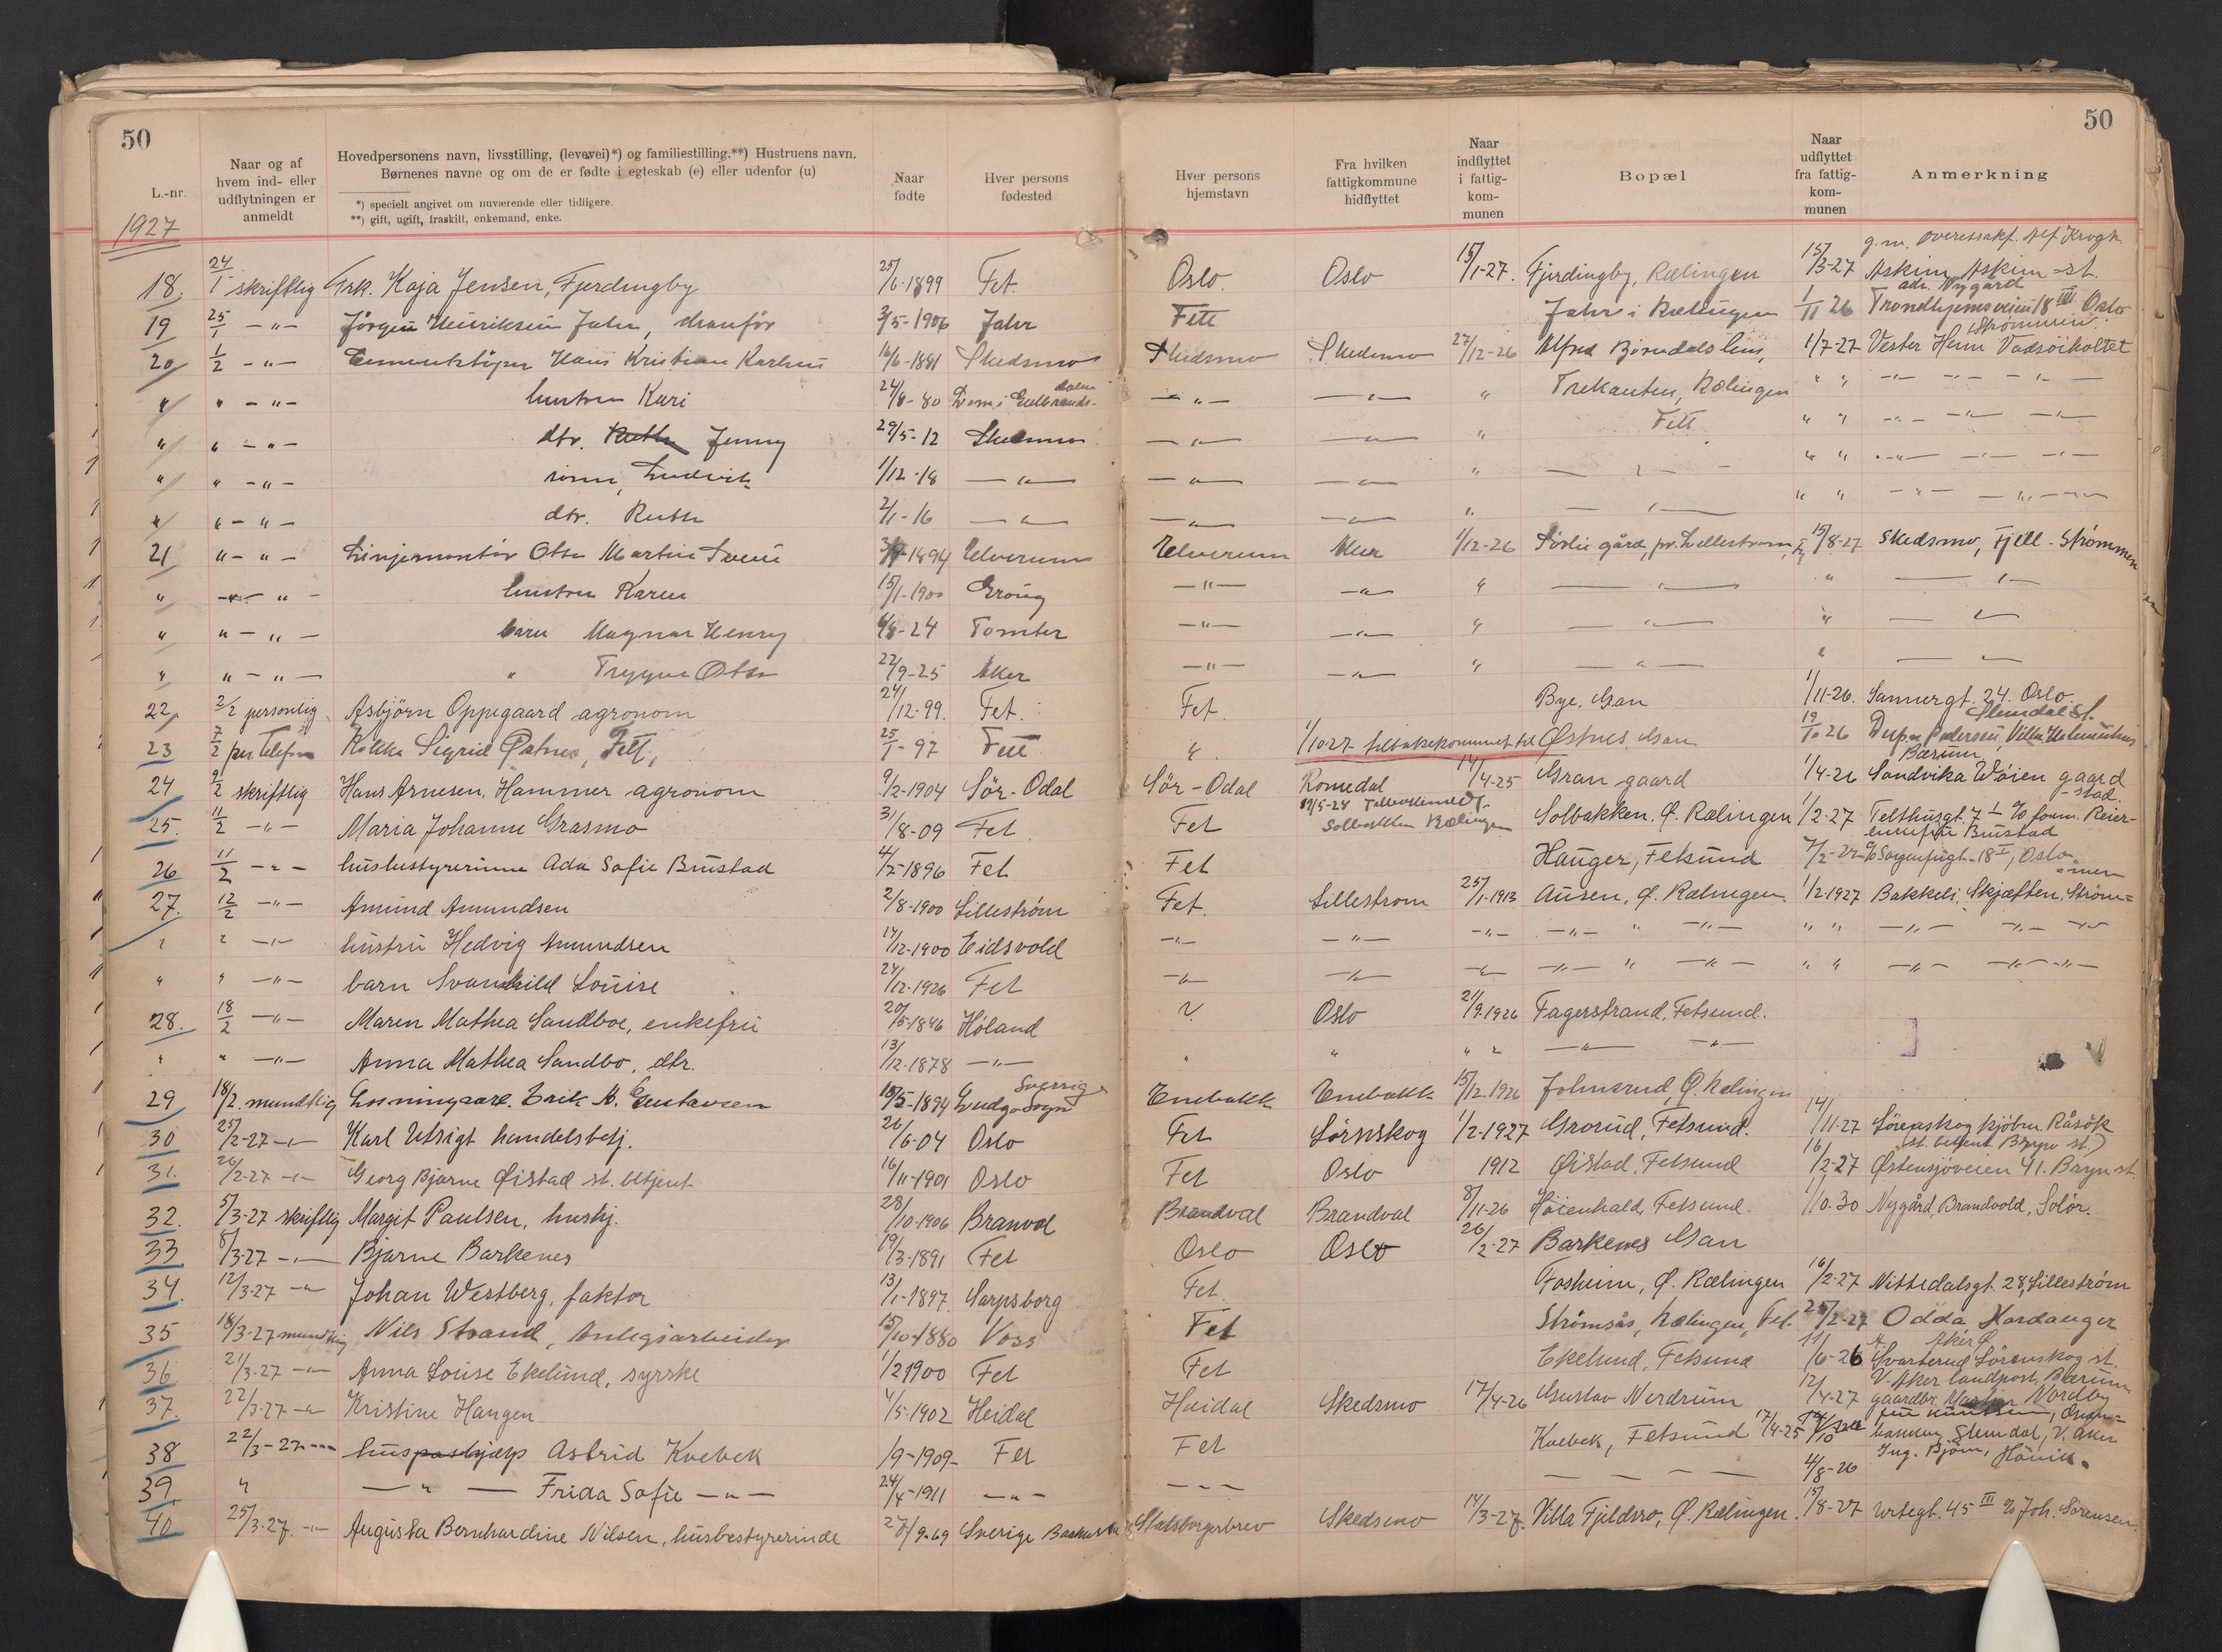 50
50
L.-nr.
Naar og af hvem ind- eller udflytningen er anmeldt
Hovedpersonens navn, livsstilling, (levevei)*) og familiestilling.**) Hustruens navn.
Børnenes navne og om de er fødte i egteskab (e) eller udenfor (u)
*) specielt angivet om nuværende eller tidligere.
**) gift, ugift, fraskilt, enkemand, enke.
Naar fødte
Hver persons fødested
Hver persons hjemstavn
Fra hvilken fattigkommune hidflyttet
Naar indflyttet i fattig-kom-munen
Bopæl
Naar udflyttet fra fattig-kom-munen
Anmerkning
1927
18. 24/1 skriftlig Frk. Kaja Jensen, Fjerdingby 25/6-1899 Fet. Oslo. Oslo 15/1-27. Fjerdingby, Rælingen 15/3-27 Askim, Askim st.
19 25/1 -"- Jörgen Henriksen Jahr 3/5-1906 Jahr Fett Jahr i Rælingen 1/11 26 Trondhjemsveien 18 III Oslo
20 1/2 -"- Hans Kristian Karlsen 16/6-1881 Skedsmo Skedsmo Skedsmo 27/12-26 Alfred Björndals hus, 1/7-27 Vester Hem Vadsöiholtet
" " -"- hustru Kari 24/8-80 -"- -"- " Trekanten, Rælingen " " -"-
" " -"- dtr. Jenny 29/5-12 Skedsmo -"- -"- " Fett " " -"-
" " -"- sönn, Ludvik 1/12-18 -"- -"- -"- " -"- " " -"-
" " -"- dtr. Ruth 2/1-16 -"- -"- -"- " -"- " " -"-
21 " -"- Linjemontör Otto Martin 1894 Elverum Elverum Aker 1/12-26 Sörlie gård, pr. Lillestrøm, 15/8-27 Skedsmo, Fjell - Strømmen
" -"- hustru Karen 15/1-1900 Grong -"- -"- " -"- " -"-
" " -"- barn Magnar Henry 24 Tomter -"- -"- " -"- " -"-
" " -"- " Trygve Otto 22/9-25 Aker -"- -"- " -"- " -"-
22 2/2 personlig Asbjörn Oppegaard agronom 24/12-99. Fet. Fet. Bye, Gan 1/11-26. Sannergt. 24. Oslo
23 7/2 per Telefon Sigrid Østnes, Fett, 25/1-97 Fett " 1/10 27 tilbakekommet til Østnes, Gan 19/10 26
24 9/2 skriftlig Hans Arnesen Hammer agronom 9/2-1904 Sör-Odal Sör-Odal Romedal 14/4-25 Gran gaard 1/4-26 Sandvika Wøien gaard Bærum
25. 11/2 -"- Maria Johanne Grasmo 31/8-09 Fet Fet Solbakken, Ø. Rælingen 1/2-27 Telthusgt. 7 I
26 11/2 -"- husbestyrerinne Ada Sofie Brustad 4/2-1896 Fet Fet Hauger, Fetsund Oslo
27. 12/2 -"- Amund Amundsen 2/8-1900 Lillestrøm Fet. Lillestrøm 25/1-1913 Ausen, Ø. Rælingen 1/2-1927 Bakkeli, Skjætten, Strøm=men
" " -"- hustru Hedvig Amundsen 14/12-1900 Eidsvold -"- -"- -"- -"- " -"- " " -"- -"- -"-
" " -"- barn Svanhild Louise 24/12-1926 Fet -"- -"- -"- -"- " -"- " " -"- -"-
28. 18/2 -"- Maren Mathea Sandboe, enkefru 20/5-1846 Höland ? Oslo 21/9-1926 Fagerstrand, Fetsund.
" " -"- Anna Mathea Sandbo, dtr. 13/12-1878 -"- " " " " -"- -"-
29 18/2 mundtlig Erik A. Gustavsen 1894 Sverrig Enebakk Enebakk 15/12 1926 Johnsrud, Ø. Rælingen
30 25/2-27 -"- Karl Utsigt handelsbetj. 26/6-04 Oslo Fet Sörnskog 1/2-1927 Grorud, Fetsund. 14/11-27
31. 26/2-27 -"- Georg Bjarne Øistad st. betjent 16/11-1901 Oslo Fet Oslo 1912 Øistad, Fetsund 16/2-27 Østensjöveien 41. Bryn st.
32. 5/3-27 skriftlig Margit Paulsen, hushj. 28/10-1906 Branval Brandval Brandval 8/11-26 Höienhald, Fetsund. 1/10.30 Nygård, Brandvold, Solör.
33 8/3-27 -"- Bjarne Barkenes 19/3-1891 Fet Oslo Oslo 26/2-27 Barkenes Gan
34. 12/3-27 -"- Johan Westberg, faktor 13/1-1897. Sarpsborg Fet. Fosheim, Ø. Rælingen 16/2-27 Nittedalsgt. 28, Lillestrøm
35 18/3-27 mundtlig Nils Strand, Anlegsarbeider 15/10-1880 Voss Fet Strömsås, Rælingen, Fet. 25/2-27 Odda Hardanger
36 21/3-27 -"- Anna Louise Ekelund, syrske 1/2 1900 Fet Fet Ekelund, Fetsund 11/6-26 Svarterud Lörenskog st.
37. 22/3-27 -"- Kristine Haugen 4/5-1902 Heidal Heidal Skedsmo 17/4-26 Gustav Nerdrum 12/4-27 gaardbr. Martin Nordby
38 22/3-27 -"- Astrid Kvebek 1/9-1909- Fet Fet Kvebek, Fetsund 17/4-25 Slemdal, V. Aker
39 " -"- Frida Sofie -"- 24/4-1911 -"- -"- 4/8-26 Ing. Björn, Hövik.
40 25/3-27. -"- Augusta Bernhardine Nilsen, husbestyrerinde 27/9-69 Sverige Statsborgerbrev Skedsmo 14/3-27. Villa Fjeldsro, Ø. Rælingen. 15/8-27 Urtegt. 45 III c/o Joh. Sörensen.